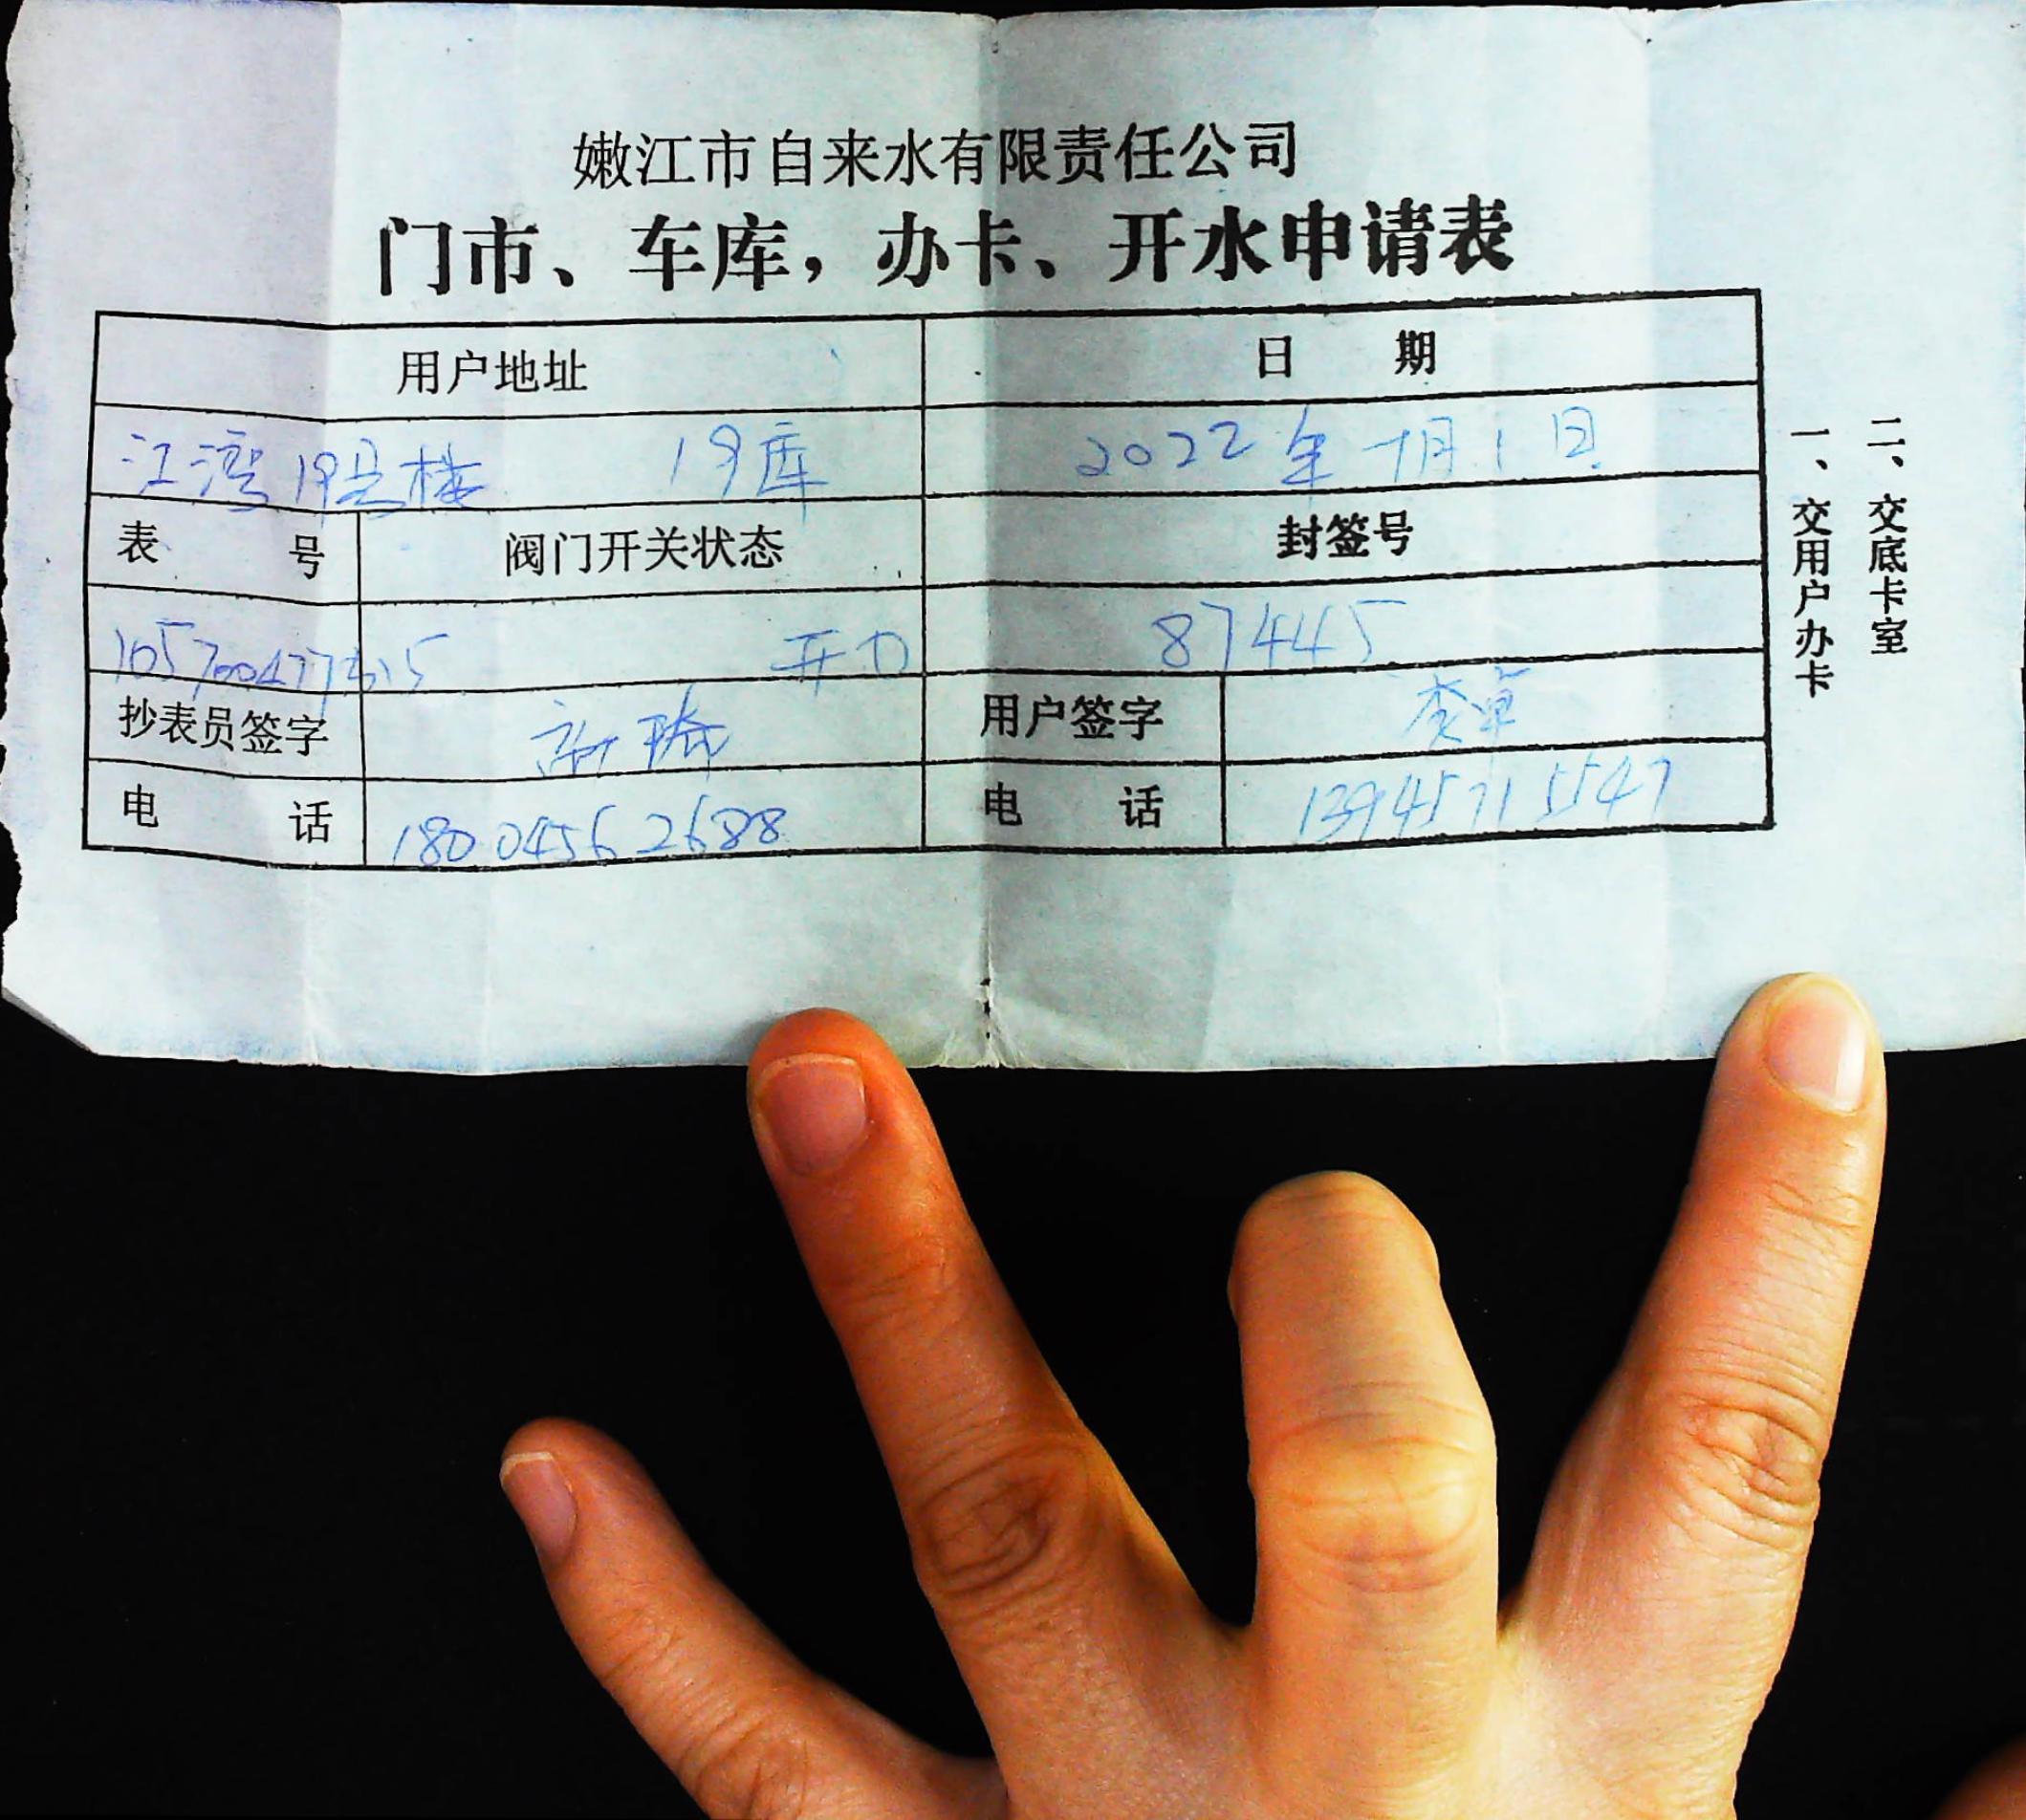 嫩江市自来水有限责任公司
门市、车库，办卡、开水申请表
用户地址 日 期
江湾19号楼 19库 2022年 十月 1 日
表 号 阀门开关状态 封签号
开 87445
抄表员签字 用户签字 李卓
电 话 18004562688 电 话 13945715547
一、交用户办卡
二、交底卡室